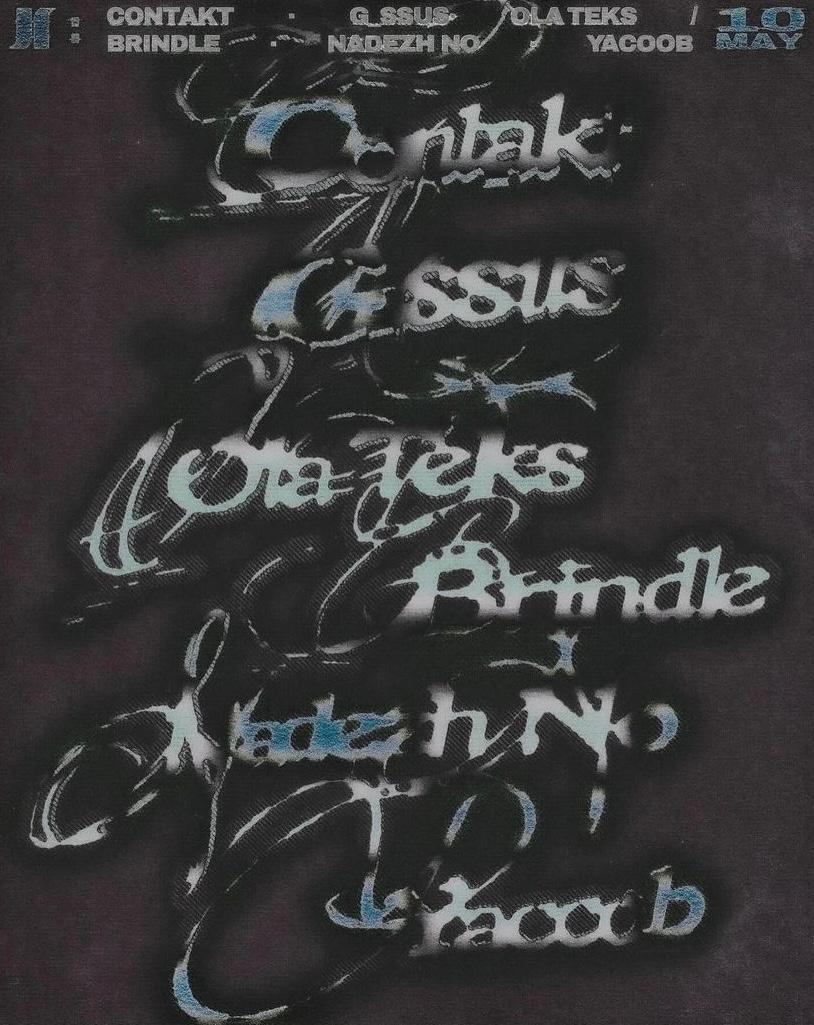 CONTAKT · G_SSUS · OLA TEKS / 10
BRINDLE · NADEZH NO · YACOOB MAY
Contakt
G_ssus
Ola Teks
Brindle
Nadezh No
Yacoob